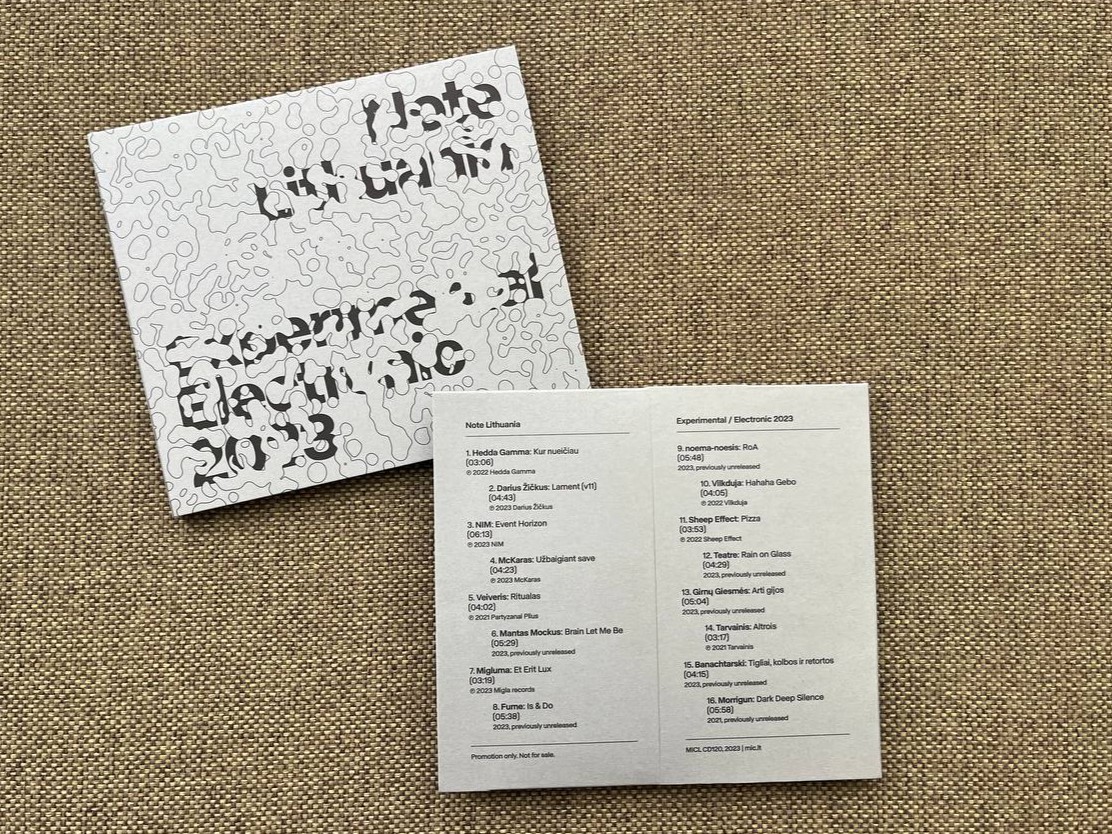 Note
Lithuania
Experimental
Electronic
2023
Note Lithuania
1. Hedda Gamma: Kur nueičiau
(03:06)
℗ 2022 Hedda Gamma
2. Darius Žičkus: Lament (v11)
(04:43)
℗ 2023 Darius Žičkus
3. NIM: Event Horizon
(06:13)
℗ 2023 NIM
4. McKaras: Užbaigiant save
(04:23)
℗ 2023 McKaras
5. Veiveris: Ritualas
(04:02)
℗ 2021 Partyzanai Plius
6. Mantas Mockus: Brain Let Me Be
(05:29)
2023, previously unreleased
7. Migluma: Et Erit Lux
(03:19)
℗ 2023 Migla records
8. Fume: Is & Do
(05:38)
2023, previously unreleased
Promotion only. Not for sale.
Experimental / Electronic 2023
9. noema-noesis: RoA
(05:48)
2023, previously unreleased
10. Vilkduja: Hahaha Gebo
(04:05)
℗ 2022 Vilkduja
11. Sheep Effect: Pizza
(03:53)
℗ 2022 Sheep Effect
12. Teatre: Rain on Glass
(04:29)
2023, previously unreleased
13. Girnų Giesmės: Arti gijos
(05:04)
2023, previously unreleased
14. Tarvainis: Altrois
(03:17)
℗ 2021 Tarvainis
15. Banachtarski: Tigliai, kolbos ir retortos
(04:15)
2023, previously unreleased
16. Morrigun: Dark Deep Silence
(05:58)
2021, previously unreleased
MICL CD120, 2023 | mic.lt